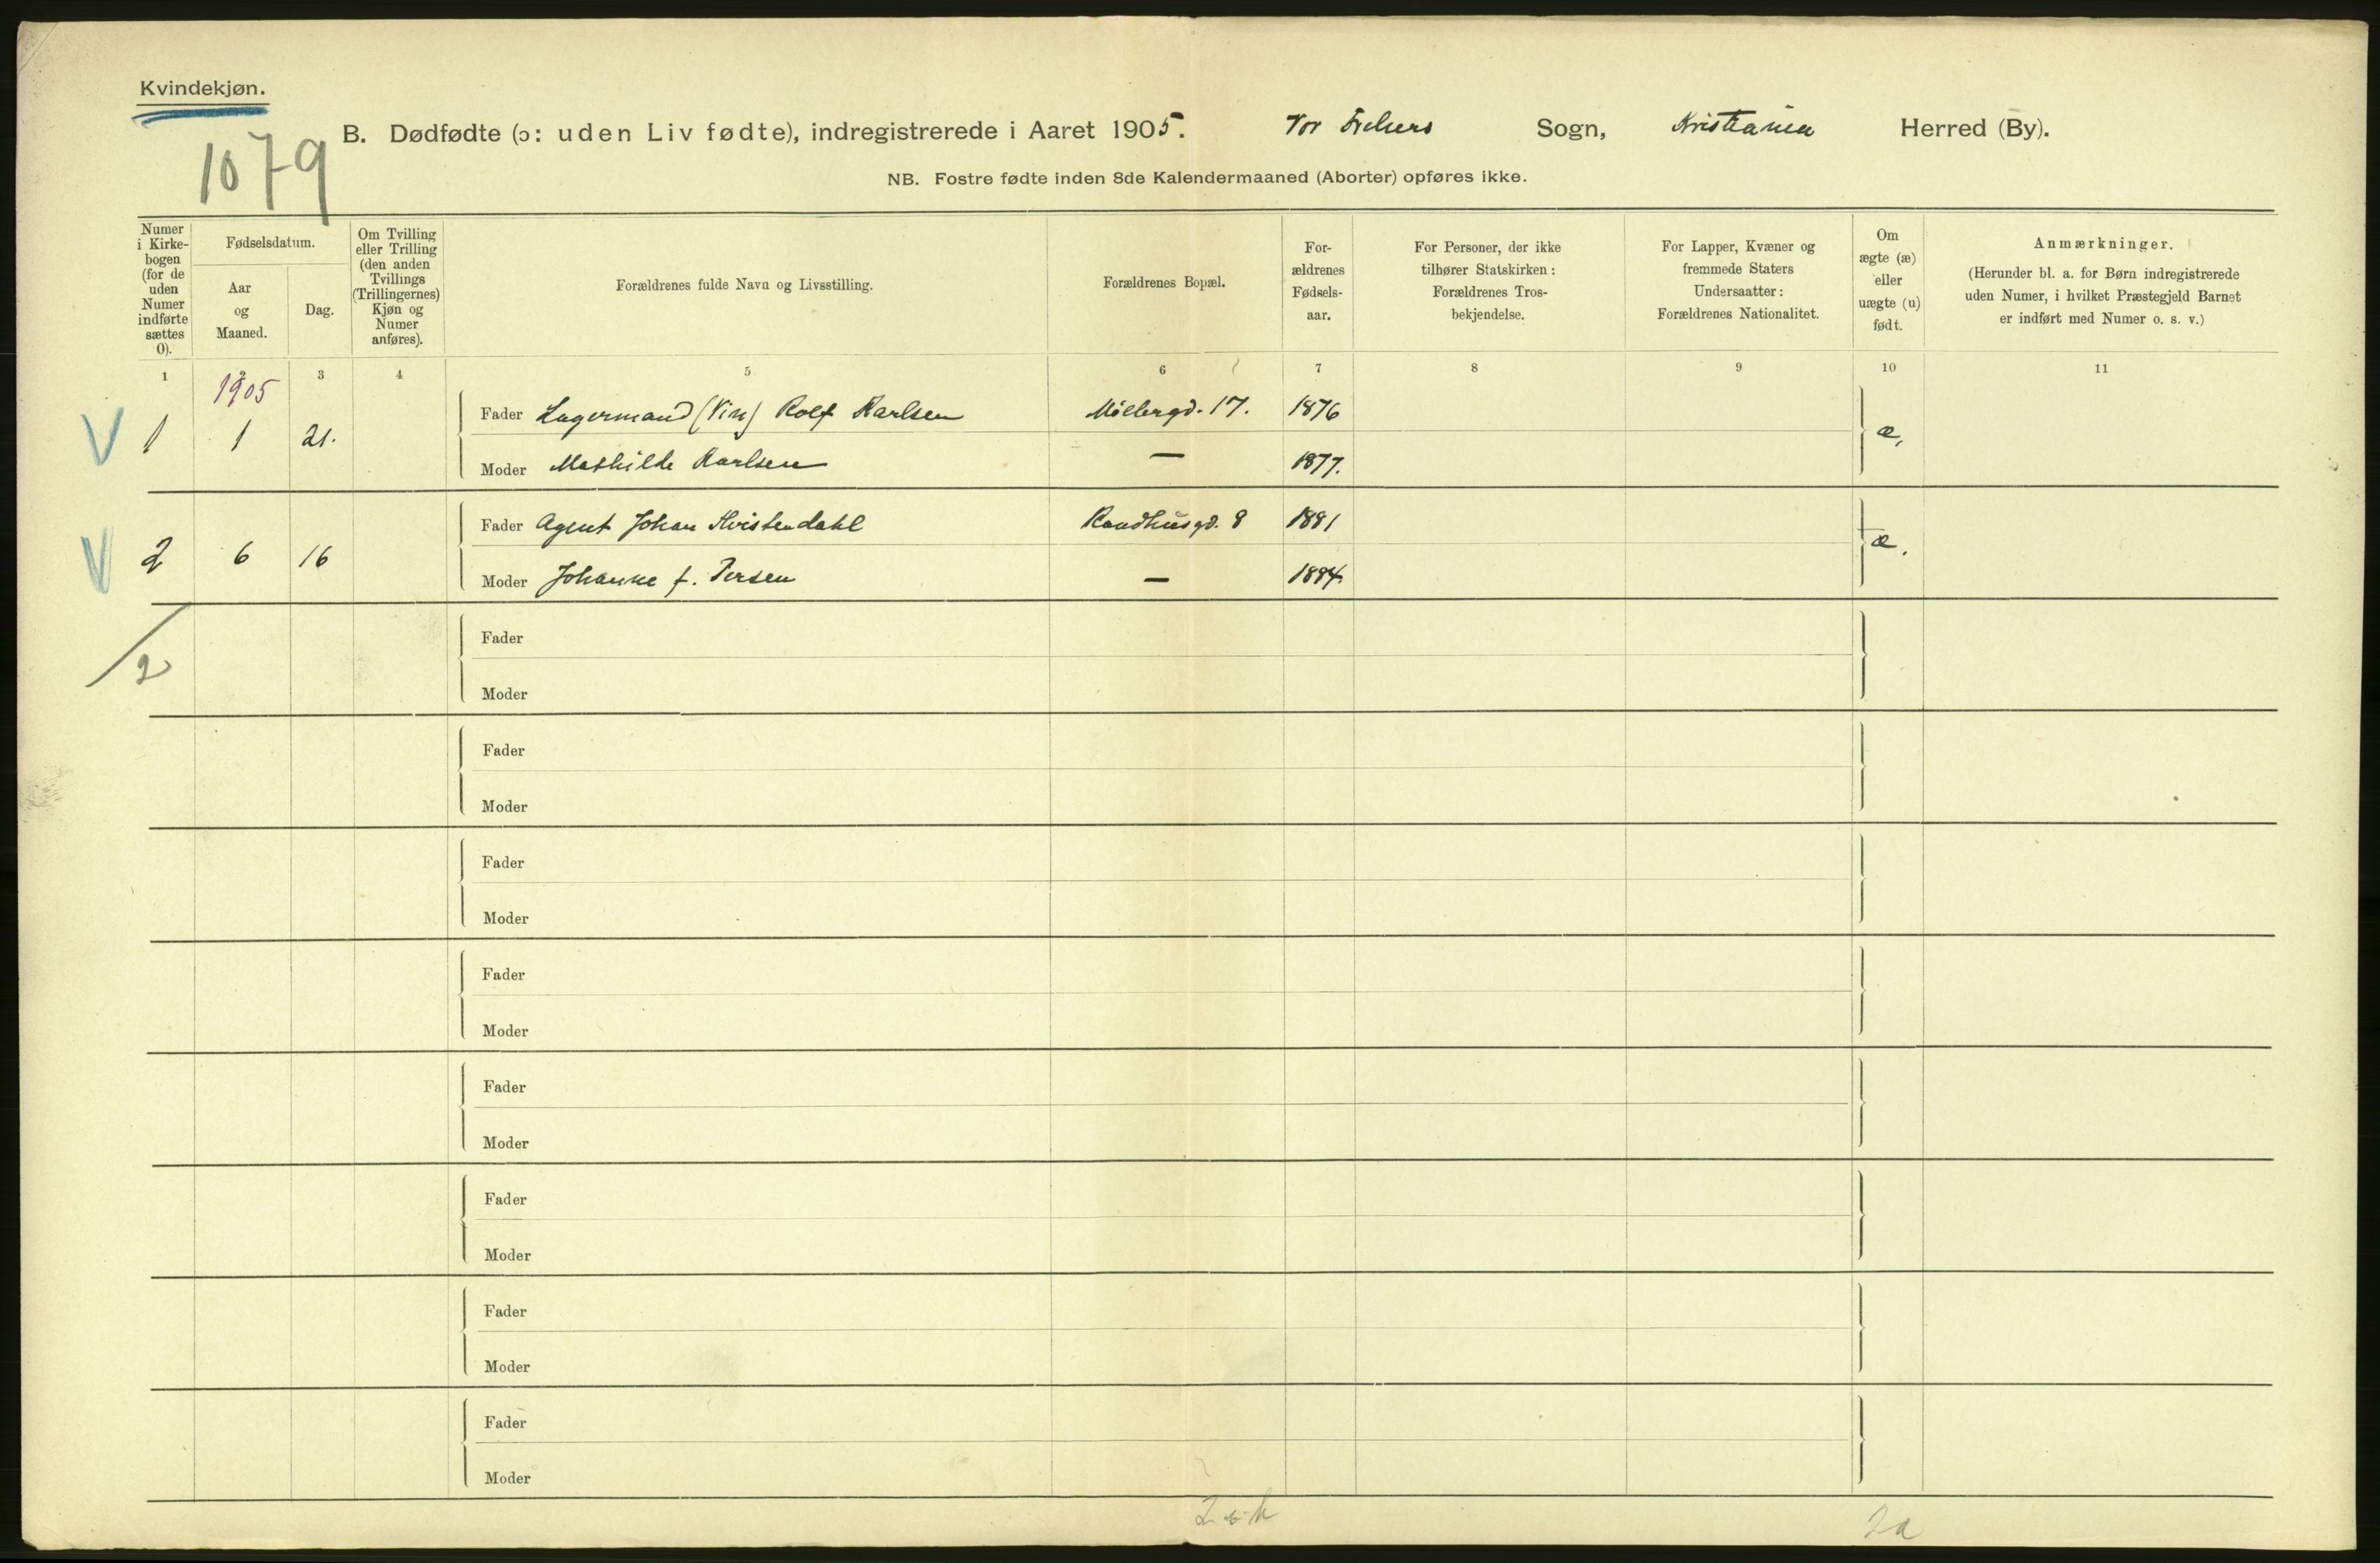 Kvindekjøn.
1079
B. Dødfødte (ɔ: uden Liv fødte), indregistrerede i Aaret 1905. Vor Frelsers Sogn, Kristiania Herred (By).
NB. Fostre fødte inden 8de Kalendermaaned (Aborter) opføres ikke.
Numer
i Kirke-
bogen
(for de
uden
Numer
indførte
sættes
0).
Fødselsdatum.
Aar
og
Maaned.
Dag.
Om Tvilling
eller Trilling
(den anden
Tvillings
(Trillingernes)
Kjøn og
Numer
anføres).
Forældrenes fulde Navn og Livsstilling.
Forældrenes Bopæl.
For-
ældrenes
Fødsels-
aar.
For Personer, der ikke
tilhører Statskirken:
Forældrenes Tros-
bekjendelse.
For Lapper, Kvæner og
fremmede Staters
Undersaatter:
Forældrenes Nationalitet.
Om
ægte (æ)
eller
uægte (u)
født.
Anmærkninger.
(Herunder bl. a. for Børn indregistrerede
uden Numer, i hvilket Præstegjeld Barnet
er indført med Numer o. s. v.)
1 2 3 4 5 6 7 8 9 10 11
1905
V 1 1 21. Fader Lagermand (Vin) Rolf Karlsen Møllergd. 17. 1876 æ.
Moder Mathilde Karlsen — 1877.
V 2 6 16 Fader Agent Johan Hvistendahl Raadhusgd. 8 1881 æ.
Moder Johanne f. Persen — 1884.
2 Fader
Moder
Fader
Moder
Fader
Moder
Fader
Moder
Fader
Moder
Fader
Moder
Fader
Moder
Fader
Moder
2æ